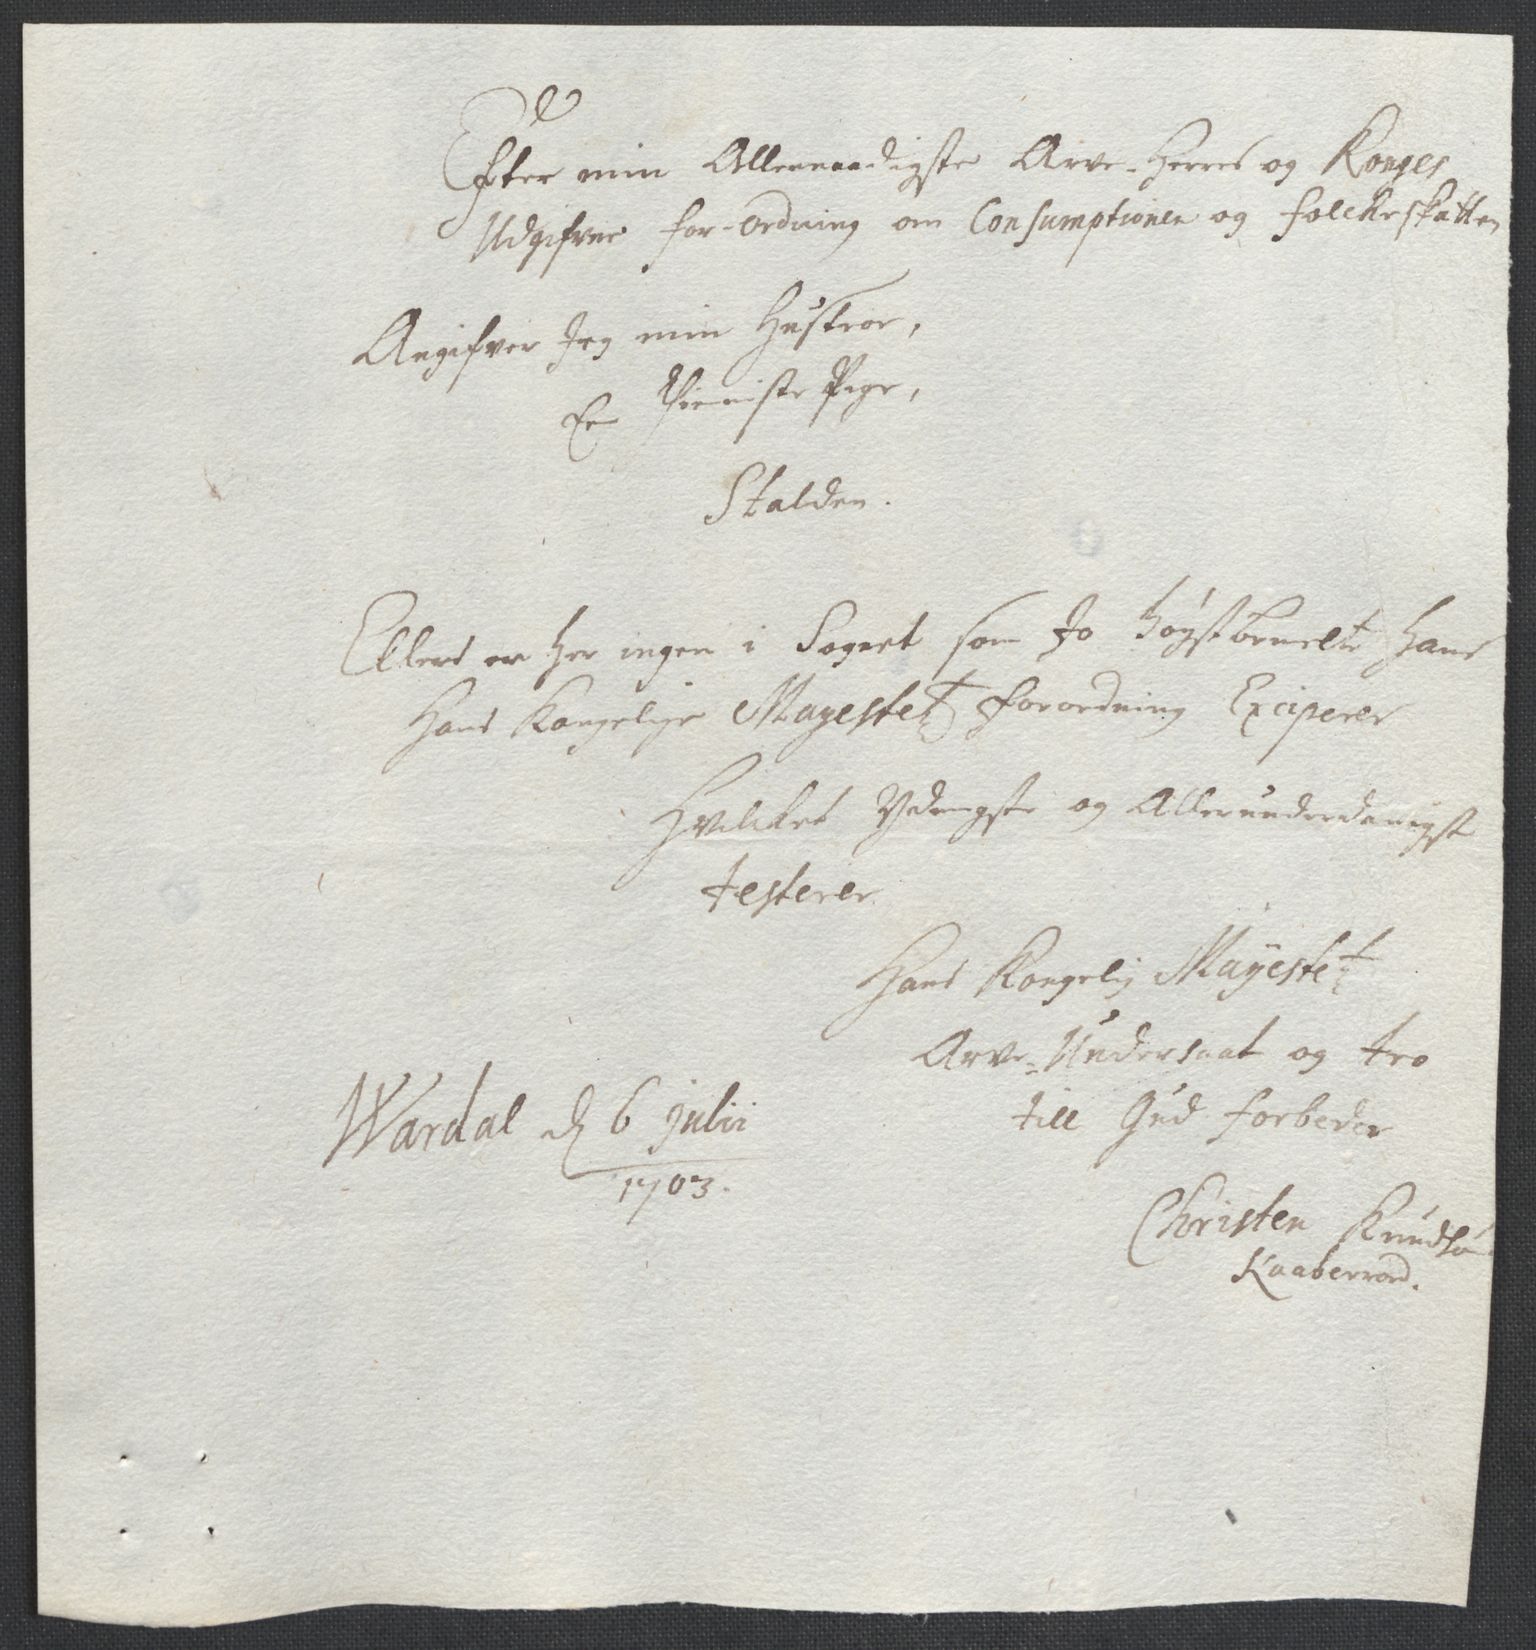 Efter min Allernaadigste Arve-Herres og Konges
Udgifvne for-ordning om Consumptionen og folckeskatten
Angifver Jeg min Hustroe,
En Thieniste Pige,
Stalden.
Ellers er her ingen i Sognet som Jo høystbemelte Hans
Hans Kongelige Mayestetz forordning Exciperer
Hvilcket Ydmygste og Allerunderdanigst
testerer
Hans Kongelig Mayestetz
Arve-Undersaat og tro
till Gud forbeder
Christen Knudsøn
Kaaberroed.
Wardal d 6 Julii
1703.